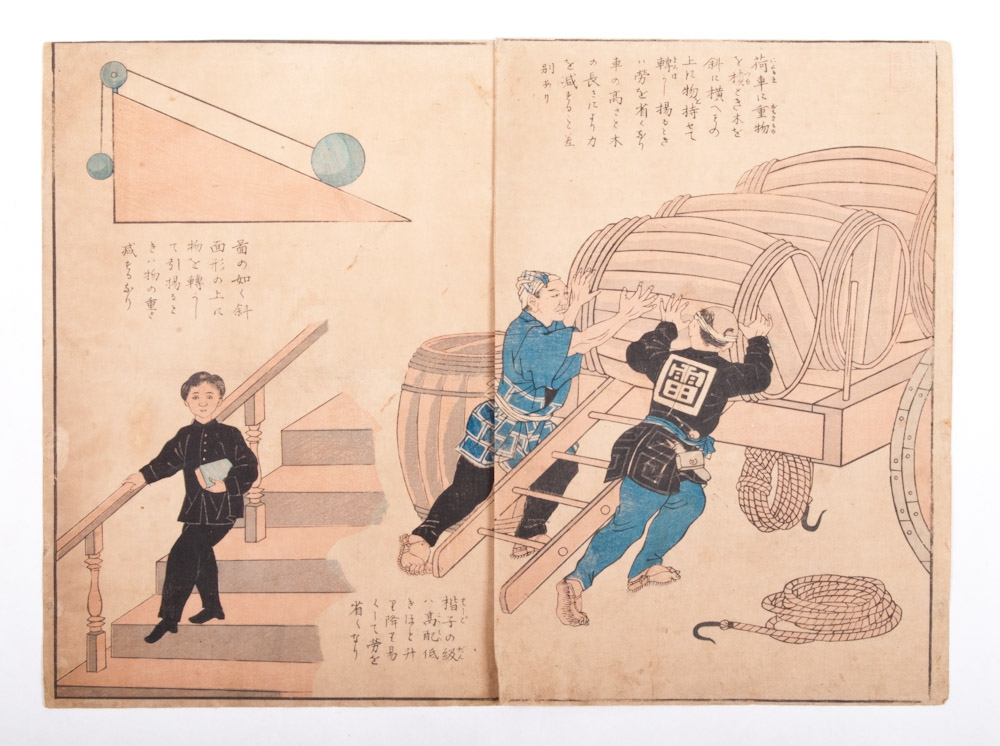 荷車に重物
を積とき木を
斜に横へその
上に物を持せて
轉し揚るとき
ハ労を省くなり
車の高さと木
の長さにより力
を減ずること差
別あり
圖の如く斜
面形の上に
物を轉し
て引揚ると
きハ物の重さ
減ずるなり
楷子の級
ハ高配低
きほど升
り降も易
くして労を
省くなり